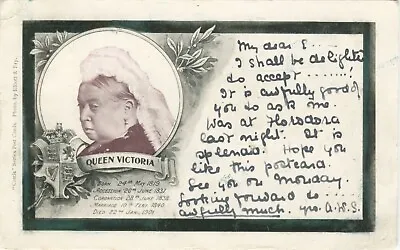 My dear S...
I shall be delighted
to accept ........!
It is awfully good of
you to ask me.
Was at Florodora
last night. It is
splendid. Hope you
like this postcard.
See you on Monday.
Looking forward to ...
awfully much. yrs. A.H.S.
QUEEN VICTORIA
BORN 24TH MAY 1819.
ACCESSION 20TH JUNE 1837.
CORONATION 28TH JUNE 1838.
MARRIAGE 10TH FEBY 1840.
DIED 22ND JANY 1901.
Series Post Cards. Photo by Elliott & Fry.